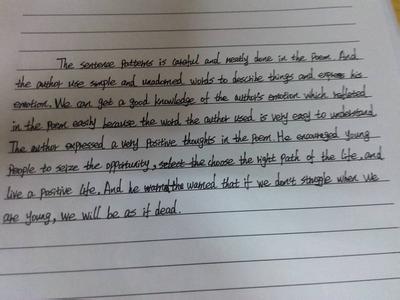 The sentence patterns is careful and neatly done in the Poem. And
the author use simple and unadorned words to describe things and express his
emotion. We can get a good knowledge of the author's emotion which reflected
in the Poem easily because the word the author used is very easy to understand
The author expressed a very Positive thoughts in the Poem. He encouraged young
People to seize the opportunity, select the choose the right path of the life, and
live a positive life. And he warned that if we don't struggle when we
are young, we will be as if dead.